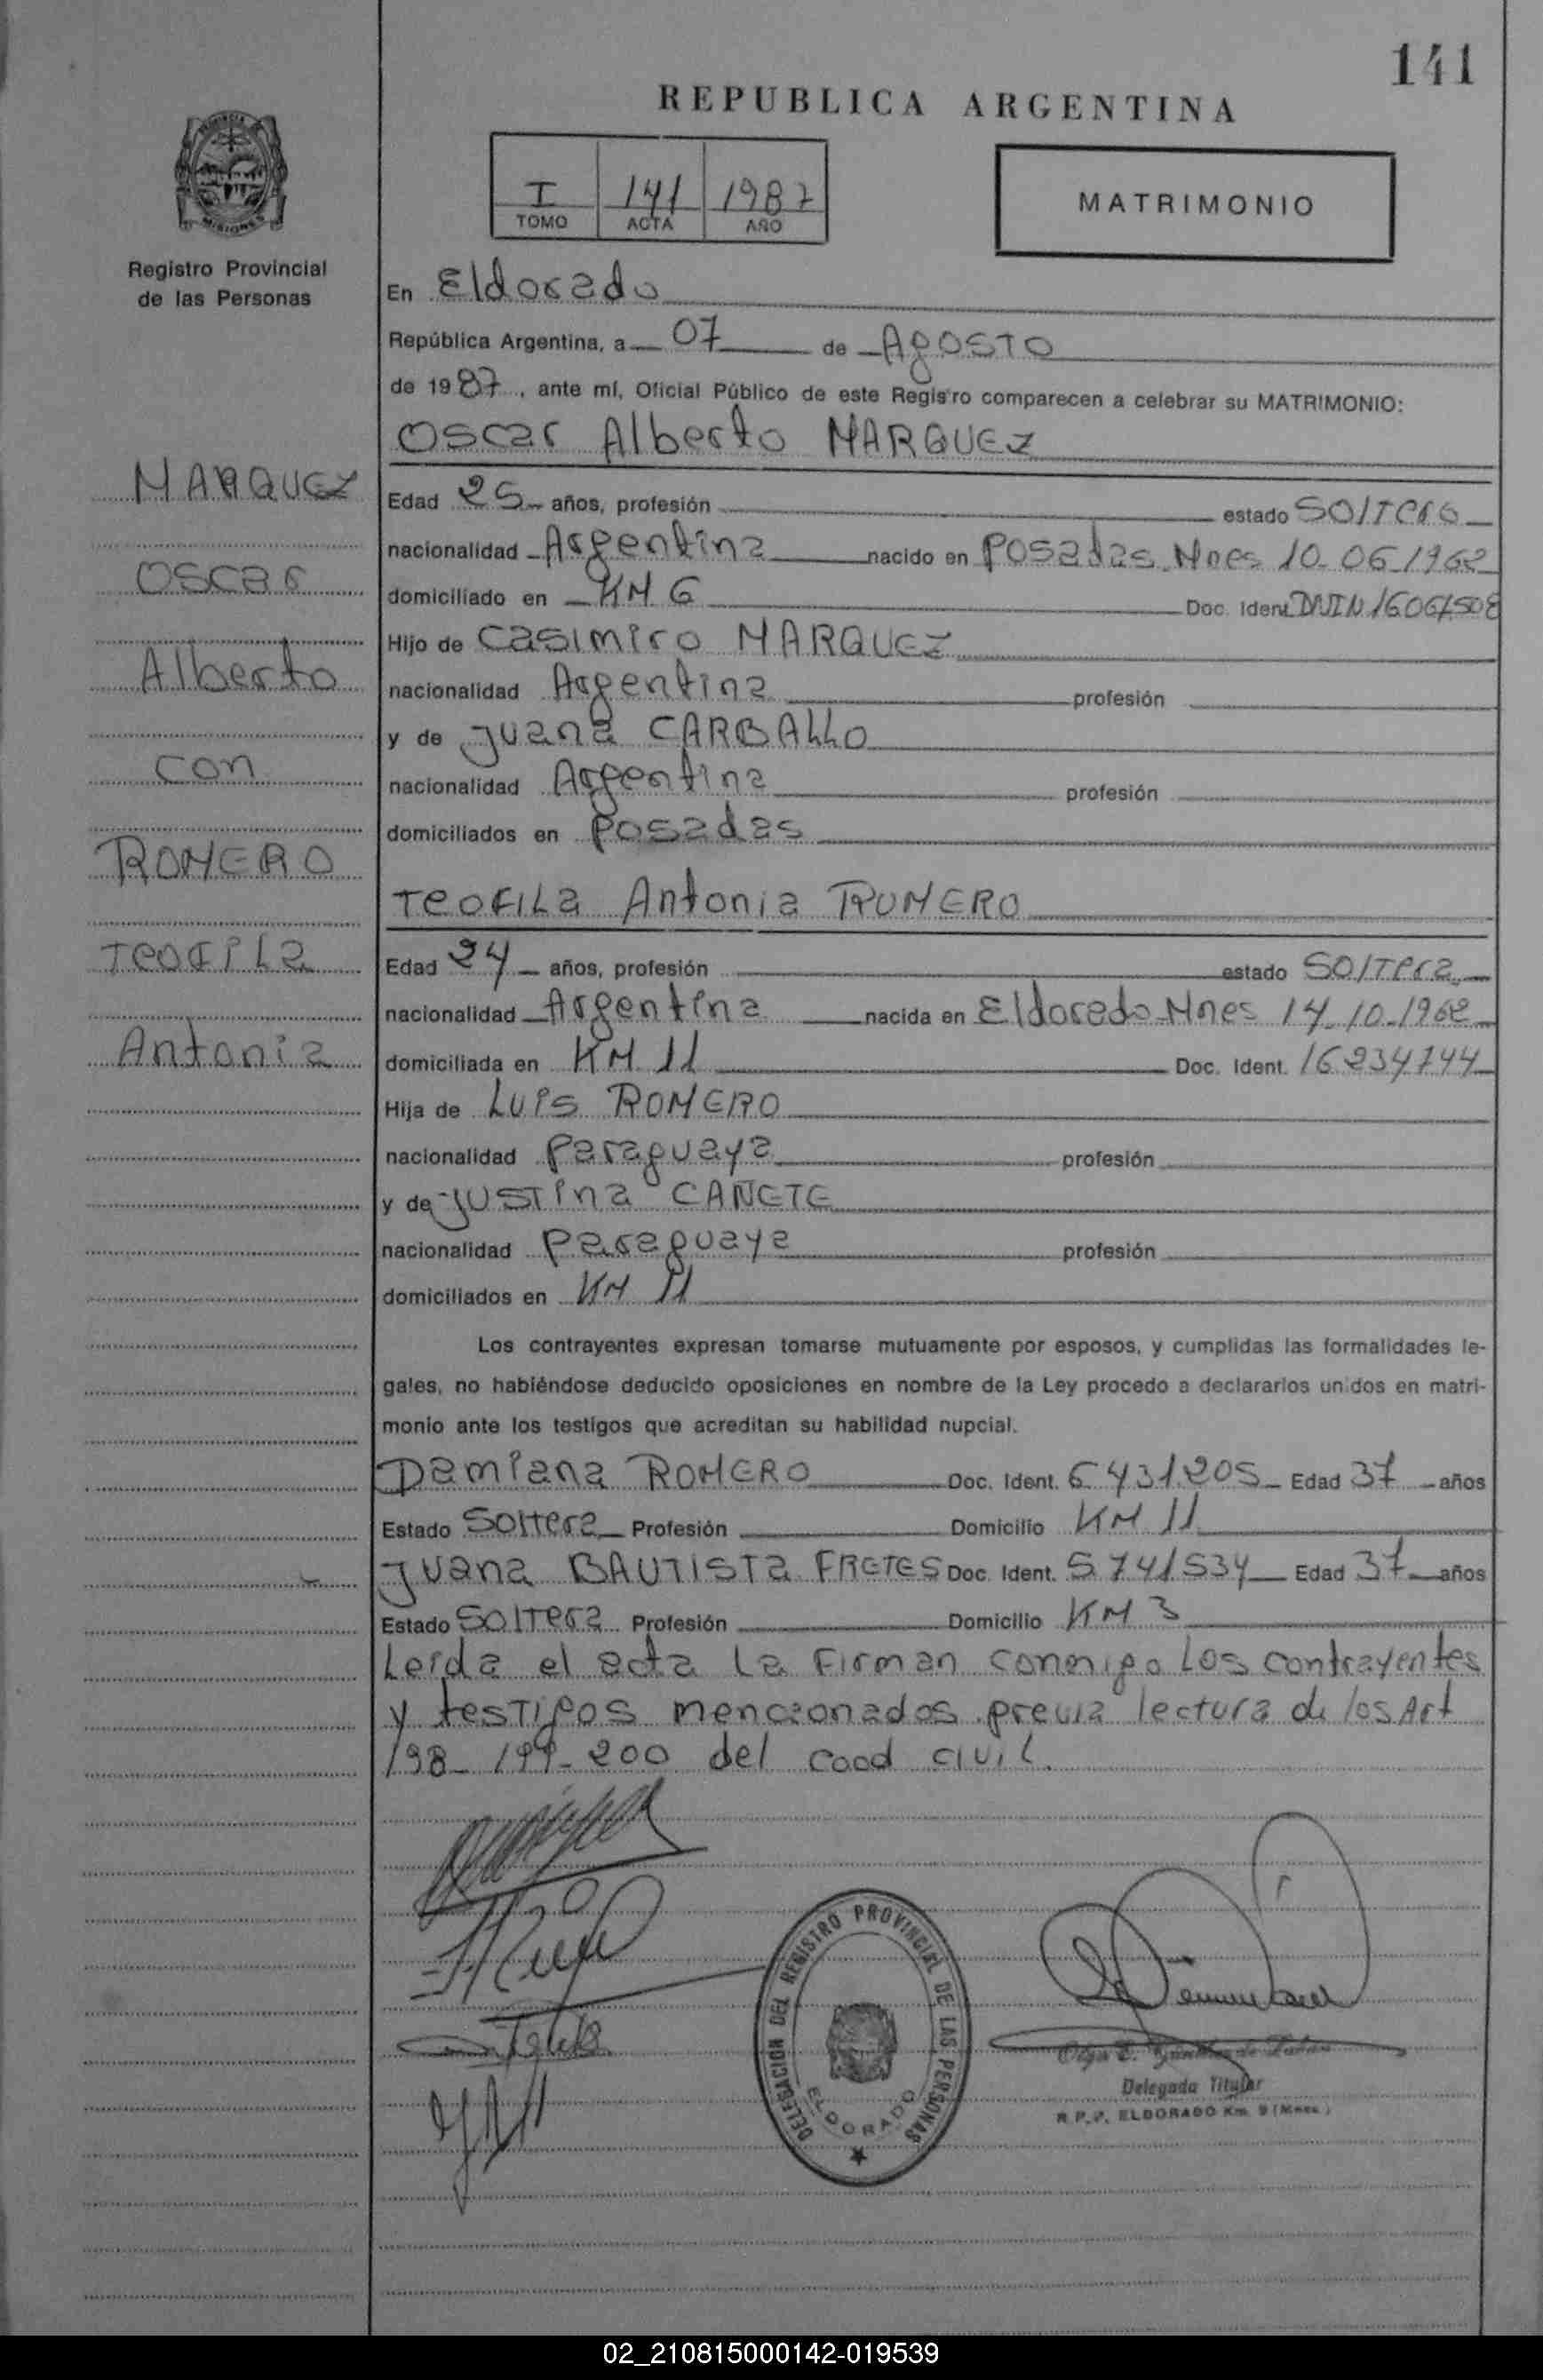 141
REPUBLICA ARGENTINA
I 141 1987
TOMO ACTA AÑO
MATRIMONIO
PROVINCIA
MISIONES
Registro Provincial
de las Personas
MARQUEZ
Oscar
Alberto
con
ROMERO
Teofila
Antonia
En Eldorado
República Argentina, a 07 de Agosto
de 1987, ante mí, Oficial Público de este Registro comparecen a celebrar su MATRIMONIO:
Oscar Alberto MARQUEZ
Edad 25 años, profesión estado soltero
nacionalidad Argentina nacido en Posadas Mnes 10-06-1962
domiciliado en KM 6 Doc. Ident.
Hijo de Casimiro MARQUEZ
nacionalidad Argentina profesión
y de Juana CARBALLO
nacionalidad Argentina profesión
domiciliados en Posadas
Teofila Antonia ROMERO
Edad 24 años, profesión estado soltera
nacionalidad Argentina nacida en Eldorado Mnes 14-10-1962
domiciliada en KM 11 Doc. Ident. 16234744
Hija de Luis ROMERO
nacionalidad Paraguaya profesión
y de Justina CAÑETE
nacionalidad Paraguaya profesión
domiciliados en KM 11
Los contrayentes expresan tomarse mutuamente por esposos, y cumplidas las formalidades le-
gales, no habiéndose deducido oposiciones en nombre de la Ley procedo a declararlos unidos en matri-
monio ante los testigos que acreditan su habilidad nupcial.
Damiana ROMERO Doc. Ident. 6431.205 Edad 37 años
Estado Soltera Profesión Domicilio KM 11
Juana BAUTISTA FRETES Doc. Ident. 5741534 Edad 37 años
Estado Soltera Profesión Domicilio KM 3
Leida el acta la firman conmigo los contrayentes
y testigos mencionados previa lectura de los Art
198-199-200 del cood civil.
DELEGACION DEL REGISTRO PROVINCIAL DE LAS PERSONAS
ELDORADO
Delegada Titular
R.P.P. ELDORADO Km. 9 (Mnes.)
02_210815000142-019539